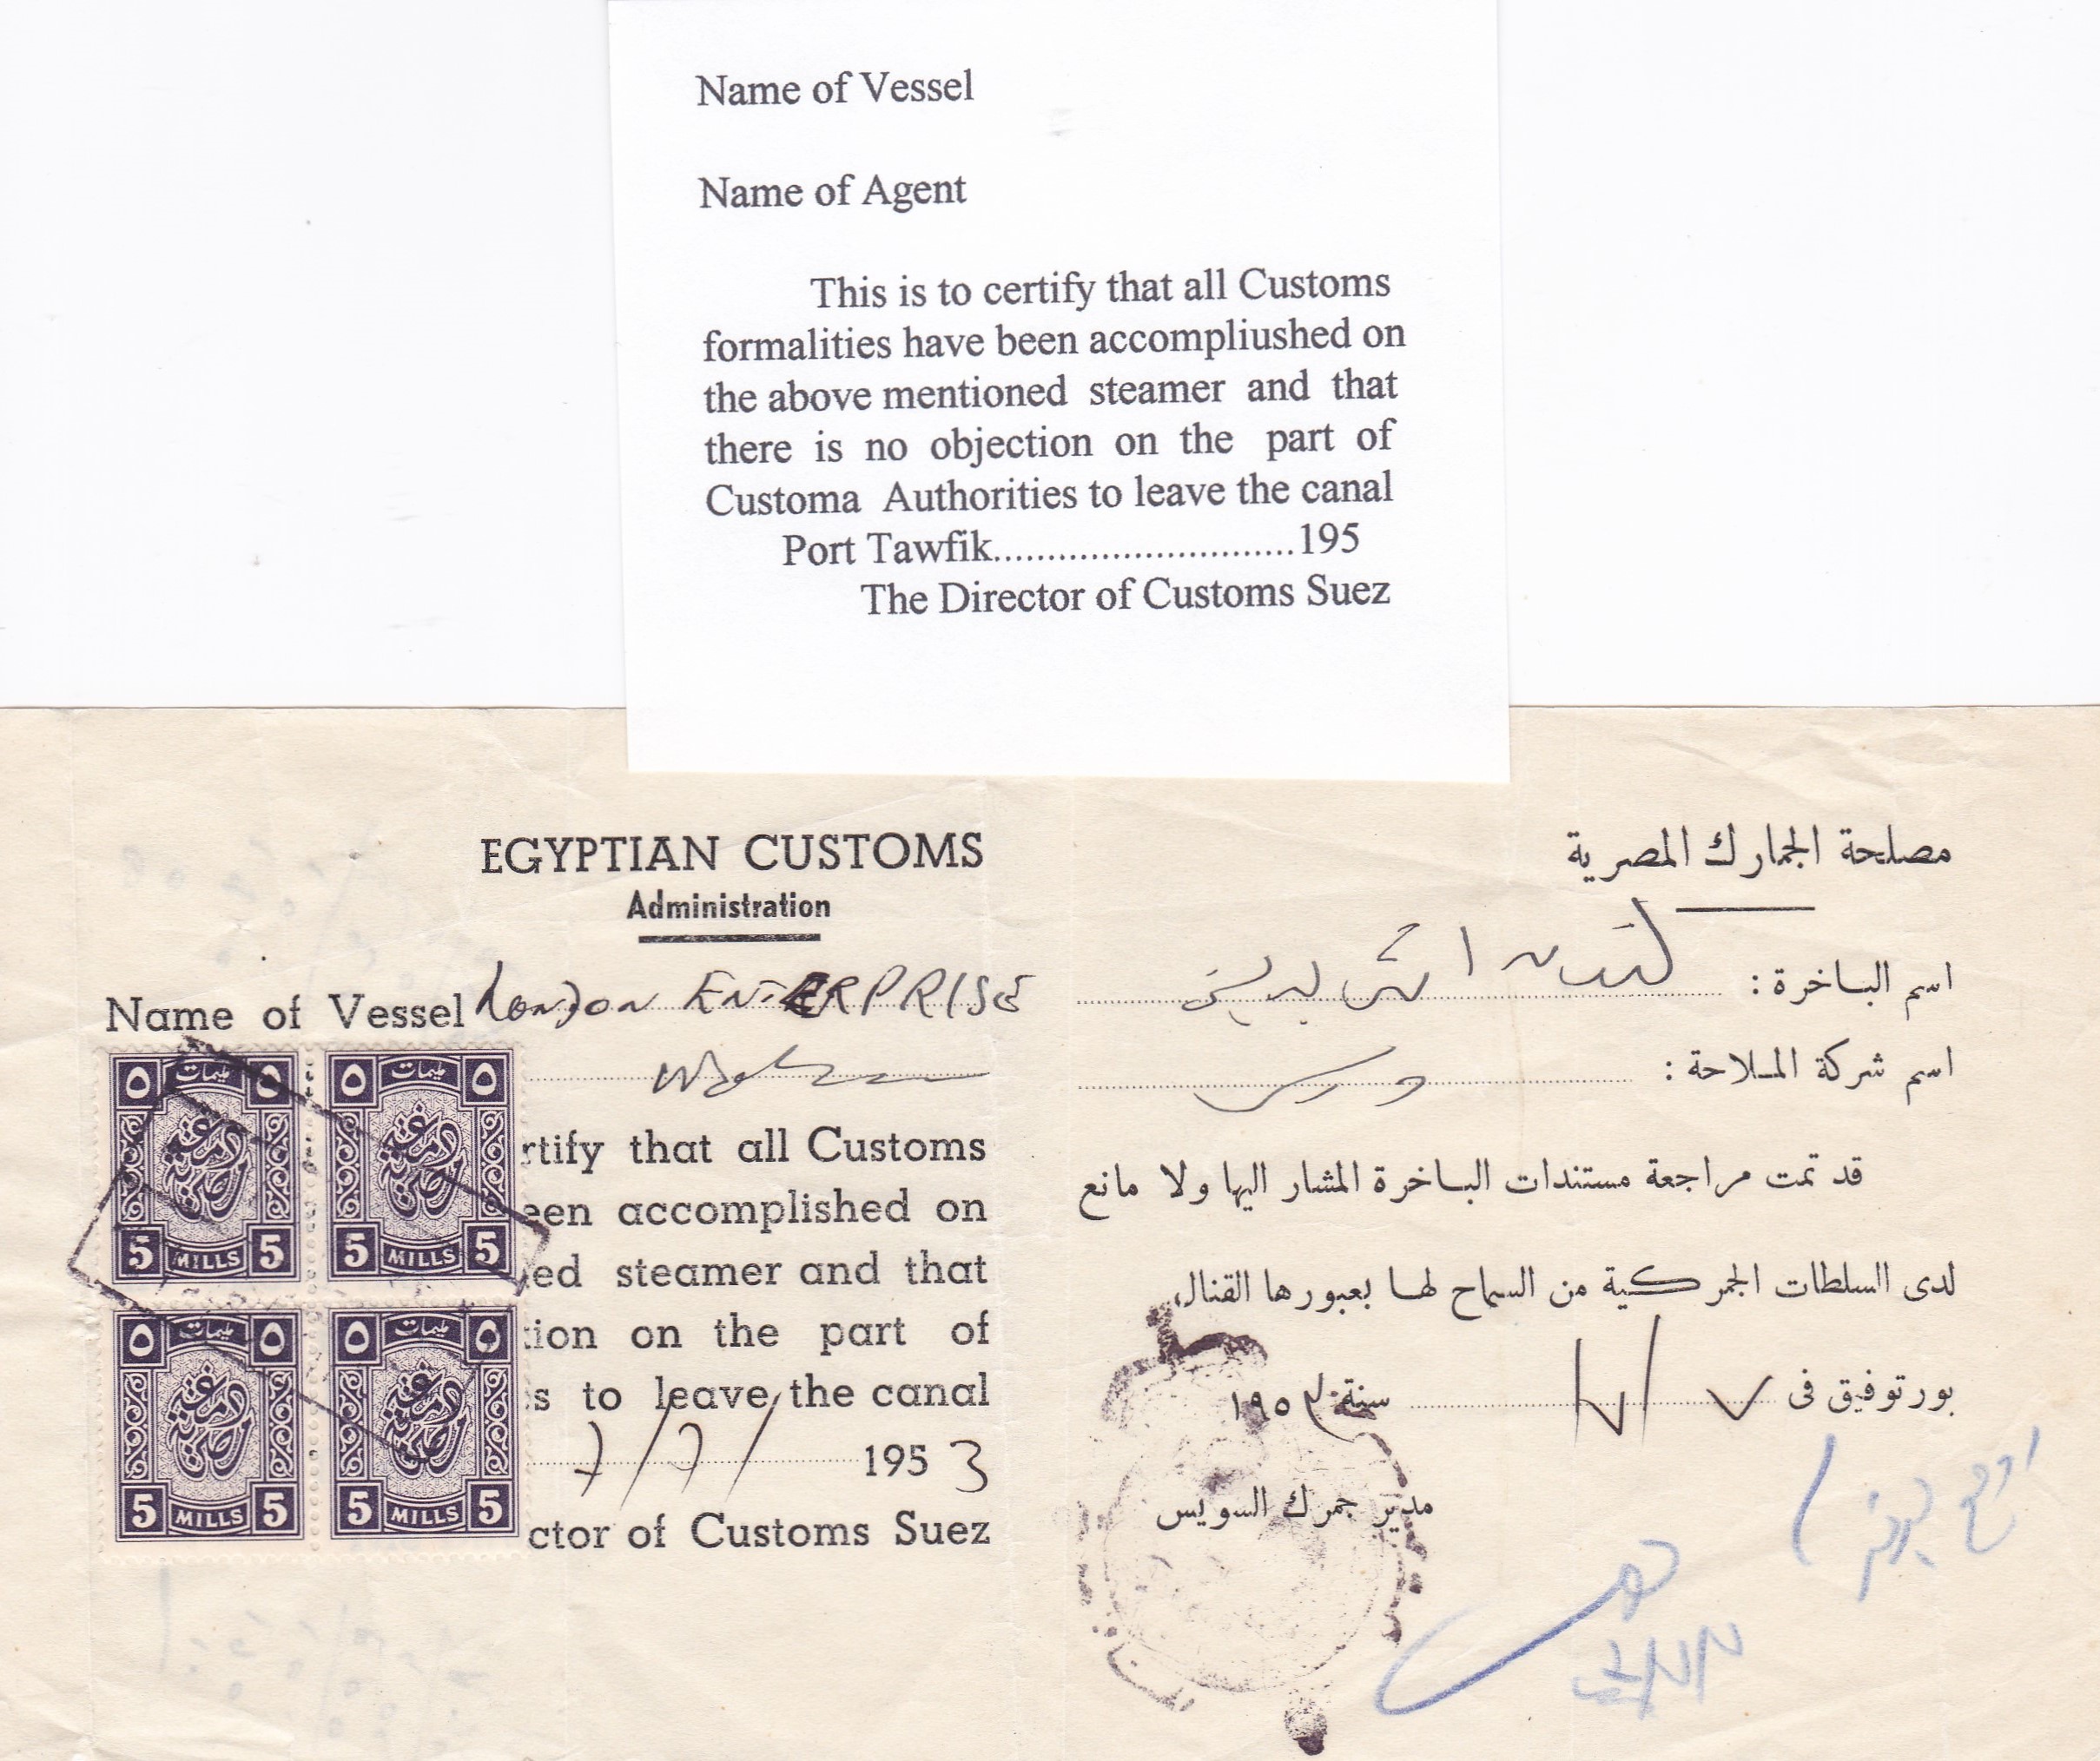 Name of Vessel
Name of Agent
This is to certify that all Customs
formalities have been accompliushed on
the above mentioned steamer and that
there is no objection on the part of
Customa Authorities to leave the canal
Port Tawfik............................195
The Director of Customs Suez
EGYPTIAN CUSTOMS
Administration
Name of Vessel London ENTERPRISE
rtify that all Customs
een accomplished on
ed steamer and that
tion on the part of
s to leave the canal
7/7/ 1953
ctor of Customs Suez
٥ مليمات ٥
دمغة مصرية
5 MILLS 5
٥ مليمات ٥
دمغة مصرية
5 MILLS 5
٥ مليمات ٥
دمغة مصرية
5 MILLS 5
٥ مليمات ٥
دمغة مصرية
5 MILLS 5
مصلحة الجمارك المصرية
اسم الباخرة : لندن انتربريز
اسم شركة الملاحة :
قد تمت مراجعة مستندات الباخرة المشار اليها ولا مانع
لدى السلطات الجمركية من السماح لها بعبورها القنال
بورتوفيق فى ٧ / ٧ / سنة ١٩٥٣
مدير جمرك السويس